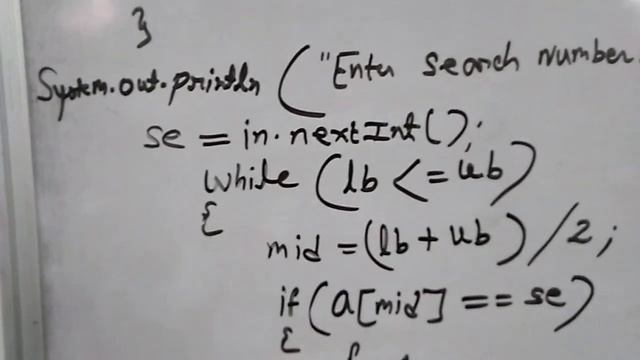 }
System.out.println ("Enter search number
se = in.nextInt();
while (lb <= ub)
{
mid = (lb + ub) / 2;
if (a[mid] == se)
{